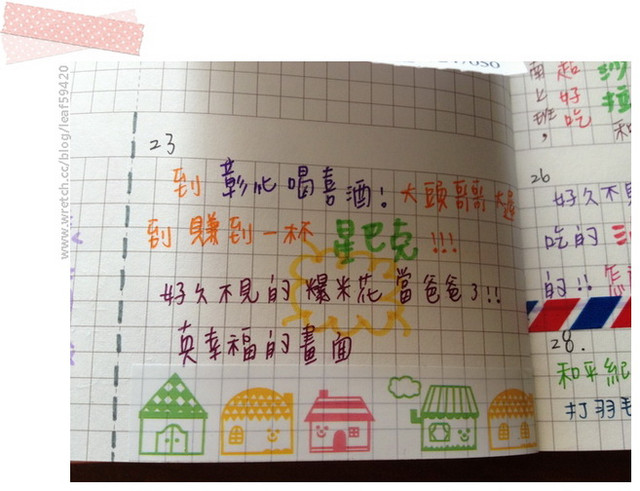 23
到彰化喝喜酒! 大頭哥哥大
到賺到一杯星巴克!!!
好久不見的爆米花當爸爸了!!
真幸福的畫面
南上班,
超好吃
沙拉
和
26
好久不
吃的
的!!
28.
和平紀
打羽毛
www.wretch.cc/blog/leaf59420